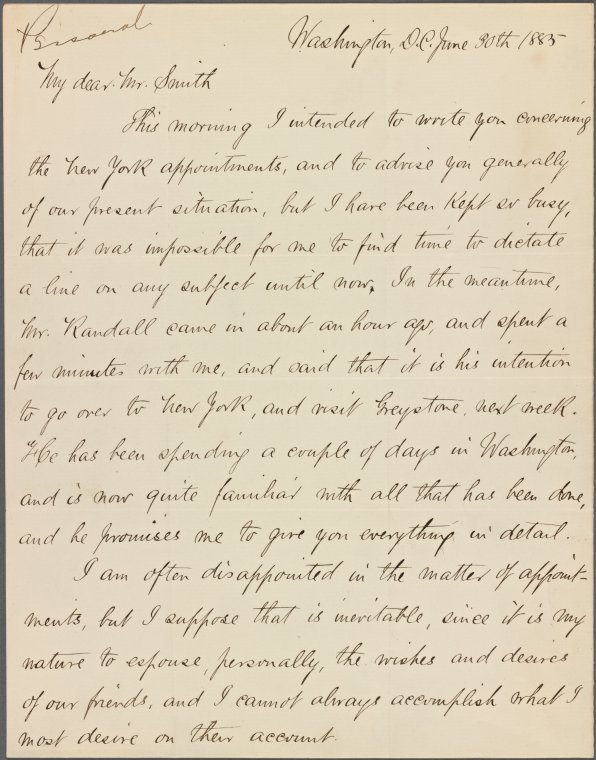 Personal
Washington, D.C. June 30th 1885
My dear Mr. Smith
This morning I intended to write you concerning
the New York appointments, and to advise you generally
of our present situation, but I have been kept so busy,
that it was impossible for me to find time to dictate
a line on any subject until now. In the meantime,
Mr. Randall came in about an hour ago, and spent a
few minutes with me, and said that it is his intention
to go over to New York, and visit Greystone, next week.
He has been spending a couple of days in Washington,
and is now quite familiar with all that has been done,
and he promises me to give you everything in detail.
I am often disappointed in the matter of appoint-
ments, but I suppose that is inevitable, since it is my
nature to espouse, personally, the wishes and desires
of our friends, and I cannot always accomplish what I
most desire on their account.